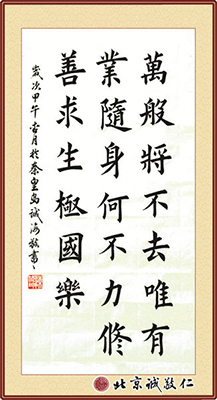 萬般將不去唯有
業隨身何不力修
善求生極國樂
歲次甲午雪月於秦皇島誠海敬書
北京誠敬仁